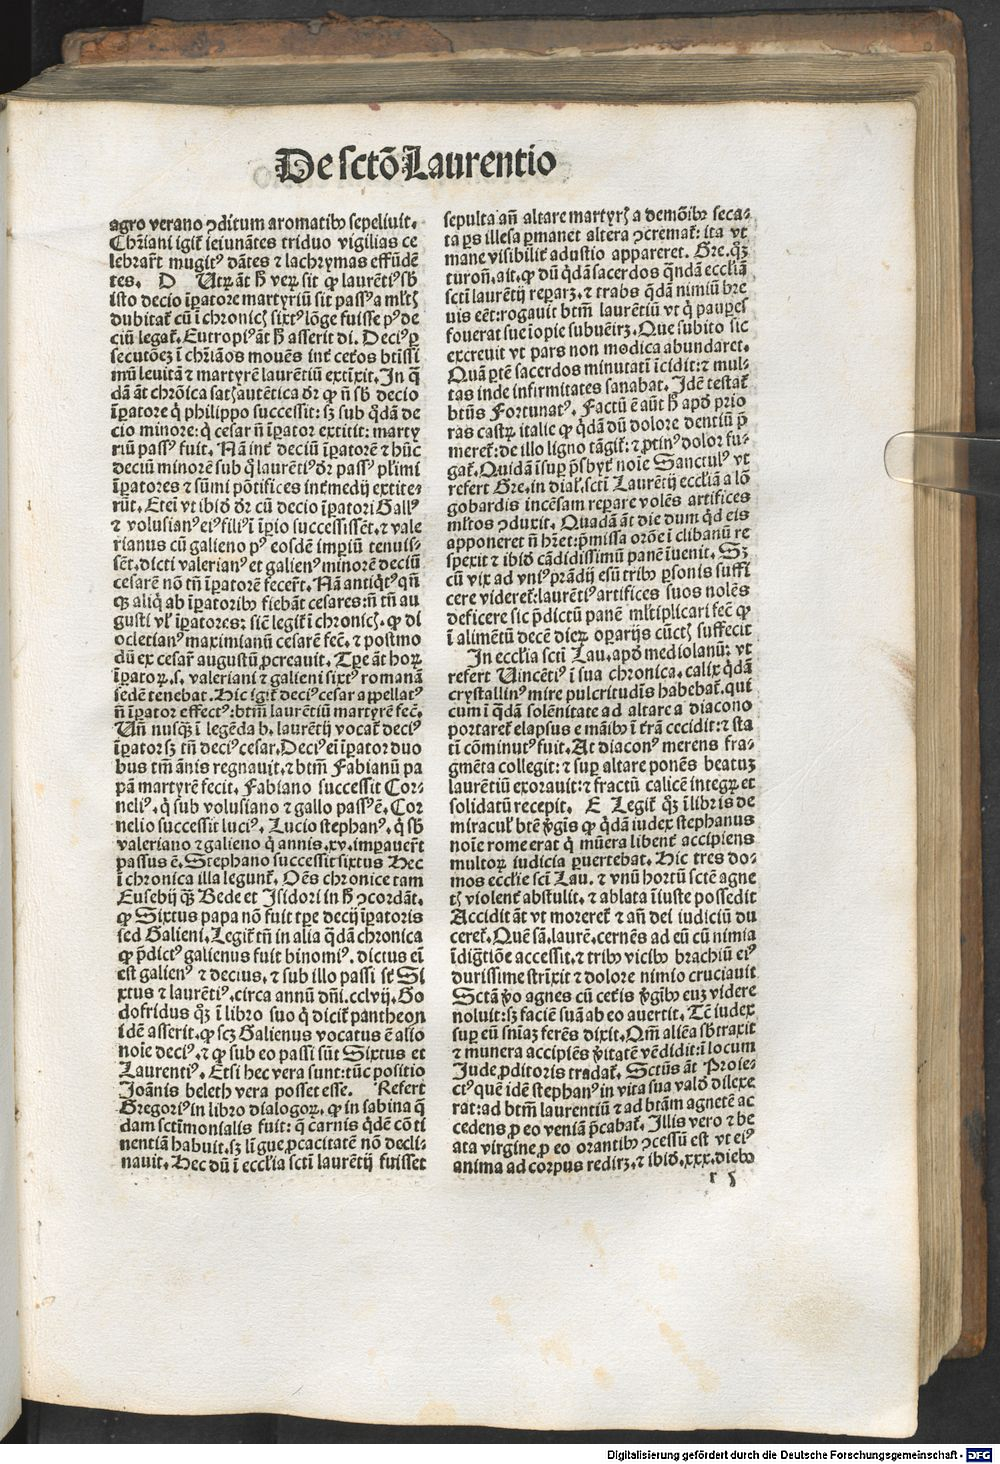 De sctō Laurentio
agro verano ꝯditum aromatibꝰ sepeliuit.
Chr̄iani igit̄ ieiunātes triduo vigilias ce
lebrar̄t mugitꝰ dātes ⁊ lachrymas effūdē
tes. D Utrꝝ āt h̄ verꝝ sit ꝙ laurētiꝰ sb̄
isto decio īꝑatore martyriū sit passꝰ a mlt̄ꝭ
dubitat̄ cū ī chronicꝭ sixtꝰ lōge fuisse pꝰ de
ciū legat̄. Eutropiꝰ āt h̄ asserit di. Deciꝰ ꝑ
secutōeꝫ ī chr̄iāos mouēs int̄ cet̄os btīssi
mū leuitā ⁊ martyrē laurētiū extīxit. In q̄
dā āt chrōica satꝭ autētica dr̄ ꝙ n̄ sb̄ decio
īꝑatore q̇ philippo successit: sꝫ sub q̇dā de
cio minore: q̇ cesar n̄ īꝑator extitit: marty
riū passꝰ fuit. Nā int̄ deciū īꝑatorē ⁊ hūc
deciū minorē sub q̇ laurētiꝰ dr̄ passꝰ pl̄imi
īꝑatores ⁊ sūmi pōtifices int̄medij extite⸗
rūt. Eteī vt ibiđ dr̄ cū decio īꝑatori Gallꝰ
⁊ volusianꝰ eiꝰ filiꝰ ī īꝑio successissēt. ⁊ vale
rianus cū galieno pꝰ eosdē imperiū tenuis⸗
sēt. dicti valerianꝰ et galienꝰ minorē deciū
cesarē nō tn̄ īꝑatorē fecer̄t. Nā antiq̇tꝰ qn̄
qꝫ aliq̇ ab īꝑatoribꝰ fiebāt cesares: n̄ tn̄ au
gusti vl̓ īꝑatores: sic̄ legit̄ ī chronicꝭ. ꝙ di
ocletianꝰ maximianū cesarē fec̄. ⁊ postmo
dū ex cesar̄ augustū ꝓcreauit. Tꝑe āt horꝝ
īꝑatorꝝ. s. valeriani ⁊ galieni sixtꝰ romanā
sedē tenebat. Hic igit̄ deciꝰ cesar appellatꝰ
n̄ īꝑator effectꝰ: btm̄ laurētiū martyrē fec̄.
Un̄ nusqꝫ ī legēda b. laurētij vocat̄ deciꝰ
īꝑator sꝫ tn̄ deciꝰ cesar. Deciꝰ eī īꝑator duo
bus tm̄ ānis regnauit. ⁊ btm̄ Fabianū pa
pā martyrē fecit. Fabiano successit Cor⸗
neliꝰ. q̇ sub volusiano ⁊ gallo passꝰ ē. Cor
nelio successit luciꝰ. Lucio stephanꝰ. q̇ sb̄
valeriano ⁊ galieno q̇ annis. xv. imꝑauer̄t
passus ē. Stephano successit sixtus Hec
ī chronica illa legunt̄. Oēs chronice tam
Eusebij qꝫ Bede et Isidori in h̄ ꝯcordāt.
ꝙ Sixtus papa nō fuit tꝑe decij īꝑatoris
sed Galieni. Legit̄ tn̄ in alia q̄dā chronica
ꝙ p̄dictꝰ galienus fuit binomiꝰ. dictus eī
est galienꝰ ⁊ decius. ⁊ sub illo passi st̄ Si
xtus ⁊ laurētiꝰ. circa annū dn̄i. cclvij. Go
dofridus qꝫ ī libro suo q̇ dicit̄ pantheon
idē asserit. ꝙ scꝫ Galienus vocatus ē alio
noīe deciꝰ. ⁊ ꝙ sub eo passi sūt Sixtus et
Laurentiꝰ. Etsi hec vera sunt: tūc positio
Joānis beleth vera posset esse. Refert
Gregoriꝰ in libro dialogorꝝ. ꝙ in sabina q̄
dam sctīmonialis fuit: q̄ carnis q̇dē cōti
nentiā habuit. sꝫ līgue ꝓcacitatē nō decli⸗
nauit. Hec dū ī eccl̓ia sctī laurētij fuisset
sepulta an̄ altare martyrꝭ a demōibꝰ seca⸗
ta ꝑs illesa ꝑmanet altera ꝯcremat̄: ita vt
mane visibilit̄ adustio appareret. Gre. qꝫ
turon̄. ait. ꝙ dū q̇dā sacerdos q̄ndā eccl̓iā
sctī laurētij reparꝫ. ⁊ trabs q̄dā nimiū bre
uis eēt: rogauit btm̄ laurētiū vt q̇ pauꝑes
fouerat sue īopie subueīrꝫ. Que subito sic
excreuit vt pars non modica abundaret.
Quā ꝑtē sacerdos minutatī īcidit: ⁊ mul⸗
tas inde infirmitates sanabat. Idē testat̄
btūs Fortunatꝰ. Factū ē aūt h̄ apđ prio
ras castrꝝ italie ꝙ q̇dā dū dolore dentiū p̄
meret̄: de illo ligno tāgit̄: ⁊ ꝓtinꝰ dolor fu⸗
gat̄. Quidā īsuꝑ p̄sbyt̄ noīe Sanctulꝰ vt
refert Gre. in dial̓. sctī Laurētij eccl̓iā a lō
gobardis incēsam reparare volēs artifices
ml̓tos ꝯduxit. Quadā āt die dum q̇d eis
apponeret n̄ hr̄et: p̄missa orōe ī clibanū re
spexit ⁊ ibiđ cādidissimū panē īuenit. Sꝫ
cū vix ad vniꝰ prādij esū tribꝰ ꝑsonis suffi
cere videret̄: laurētiꝰ artifices suos nolēs
deficere sic p̄dictū panē ml̓tiplicari fec̄ ꝙ
ī alimētū decē dierꝝ oꝑarijs cūctꝭ suffecit
In eccl̓ia sctī Lau. apđ mediolanū: vt
refert Uincētiꝰ ī sua chronica. calix q̇dā
crystallinꝰ mire pulcritudīs habebat̄. qui
cum ī q̄dā solēnitate ad altare a diacono
portaret̄ elapsus e māibꝰ ī t̄rā cecidit: ⁊ sta
tī cōminutꝰ fuit. At diaconꝰ merens fra⸗
gmēta collegit: ⁊ suꝑ altare ponēs beatuꝫ
laurētiū exorauit: ⁊ fractū calicē integrꝝ et
solidatū recepit. E Legit̄ qꝫ ī libris de
miraculꝭ btē v̄gīs ꝙ q̇dā iudex stephanus
noīe rome erat q̇ mūera libent̄ accipiens
multorꝝ iudicia ꝑuertebat. Hic tres do⸗
mos eccl̓ie sctī Lau. ⁊ vnū hortū sctē agne
tꝭ violent̄ abstulit. ⁊ ablata īiuste possedit
Accidit āt vt moreret̄ ⁊ an̄ dei iudiciū du
ceret̄. Quē sā. laurē. cernēs ad eū cū nimia
īdigtīōe accessit. ⁊ tribꝰ vicibꝰ brachiū eiꝰ
durissime strīxit ⁊ dolore nimio cruciauit
Sctā v̄o agnes cū cet̄is v̄gībꝰ euꝫ videre
noluit: sꝫ faciē suā ab eo auertit. Tc̄ iudex
suꝑ eū sn̄iaꝫ ferēs dixit. Qm̄ aliēa sb̄traxit
⁊ munera accipiēs v̄itatē vēdidit: ī locum
Jude ꝓditoris tradat̄. Sctūs āt Proie⸗
ctꝰ quē idē stephanꝰ in vita sua valđ dilexe
rat: ad btm̄ laurentiū ⁊ ad btām agnetē ac
cedens ꝓ eo veniā p̄cabat̄. Illis vero ⁊ be
ata virgine ꝓ eo orantibꝰ ꝯcessū est vt eiꝰ
anima ad corpus redirꝫ. ⁊ ibiđ. xxx. diebꝰ